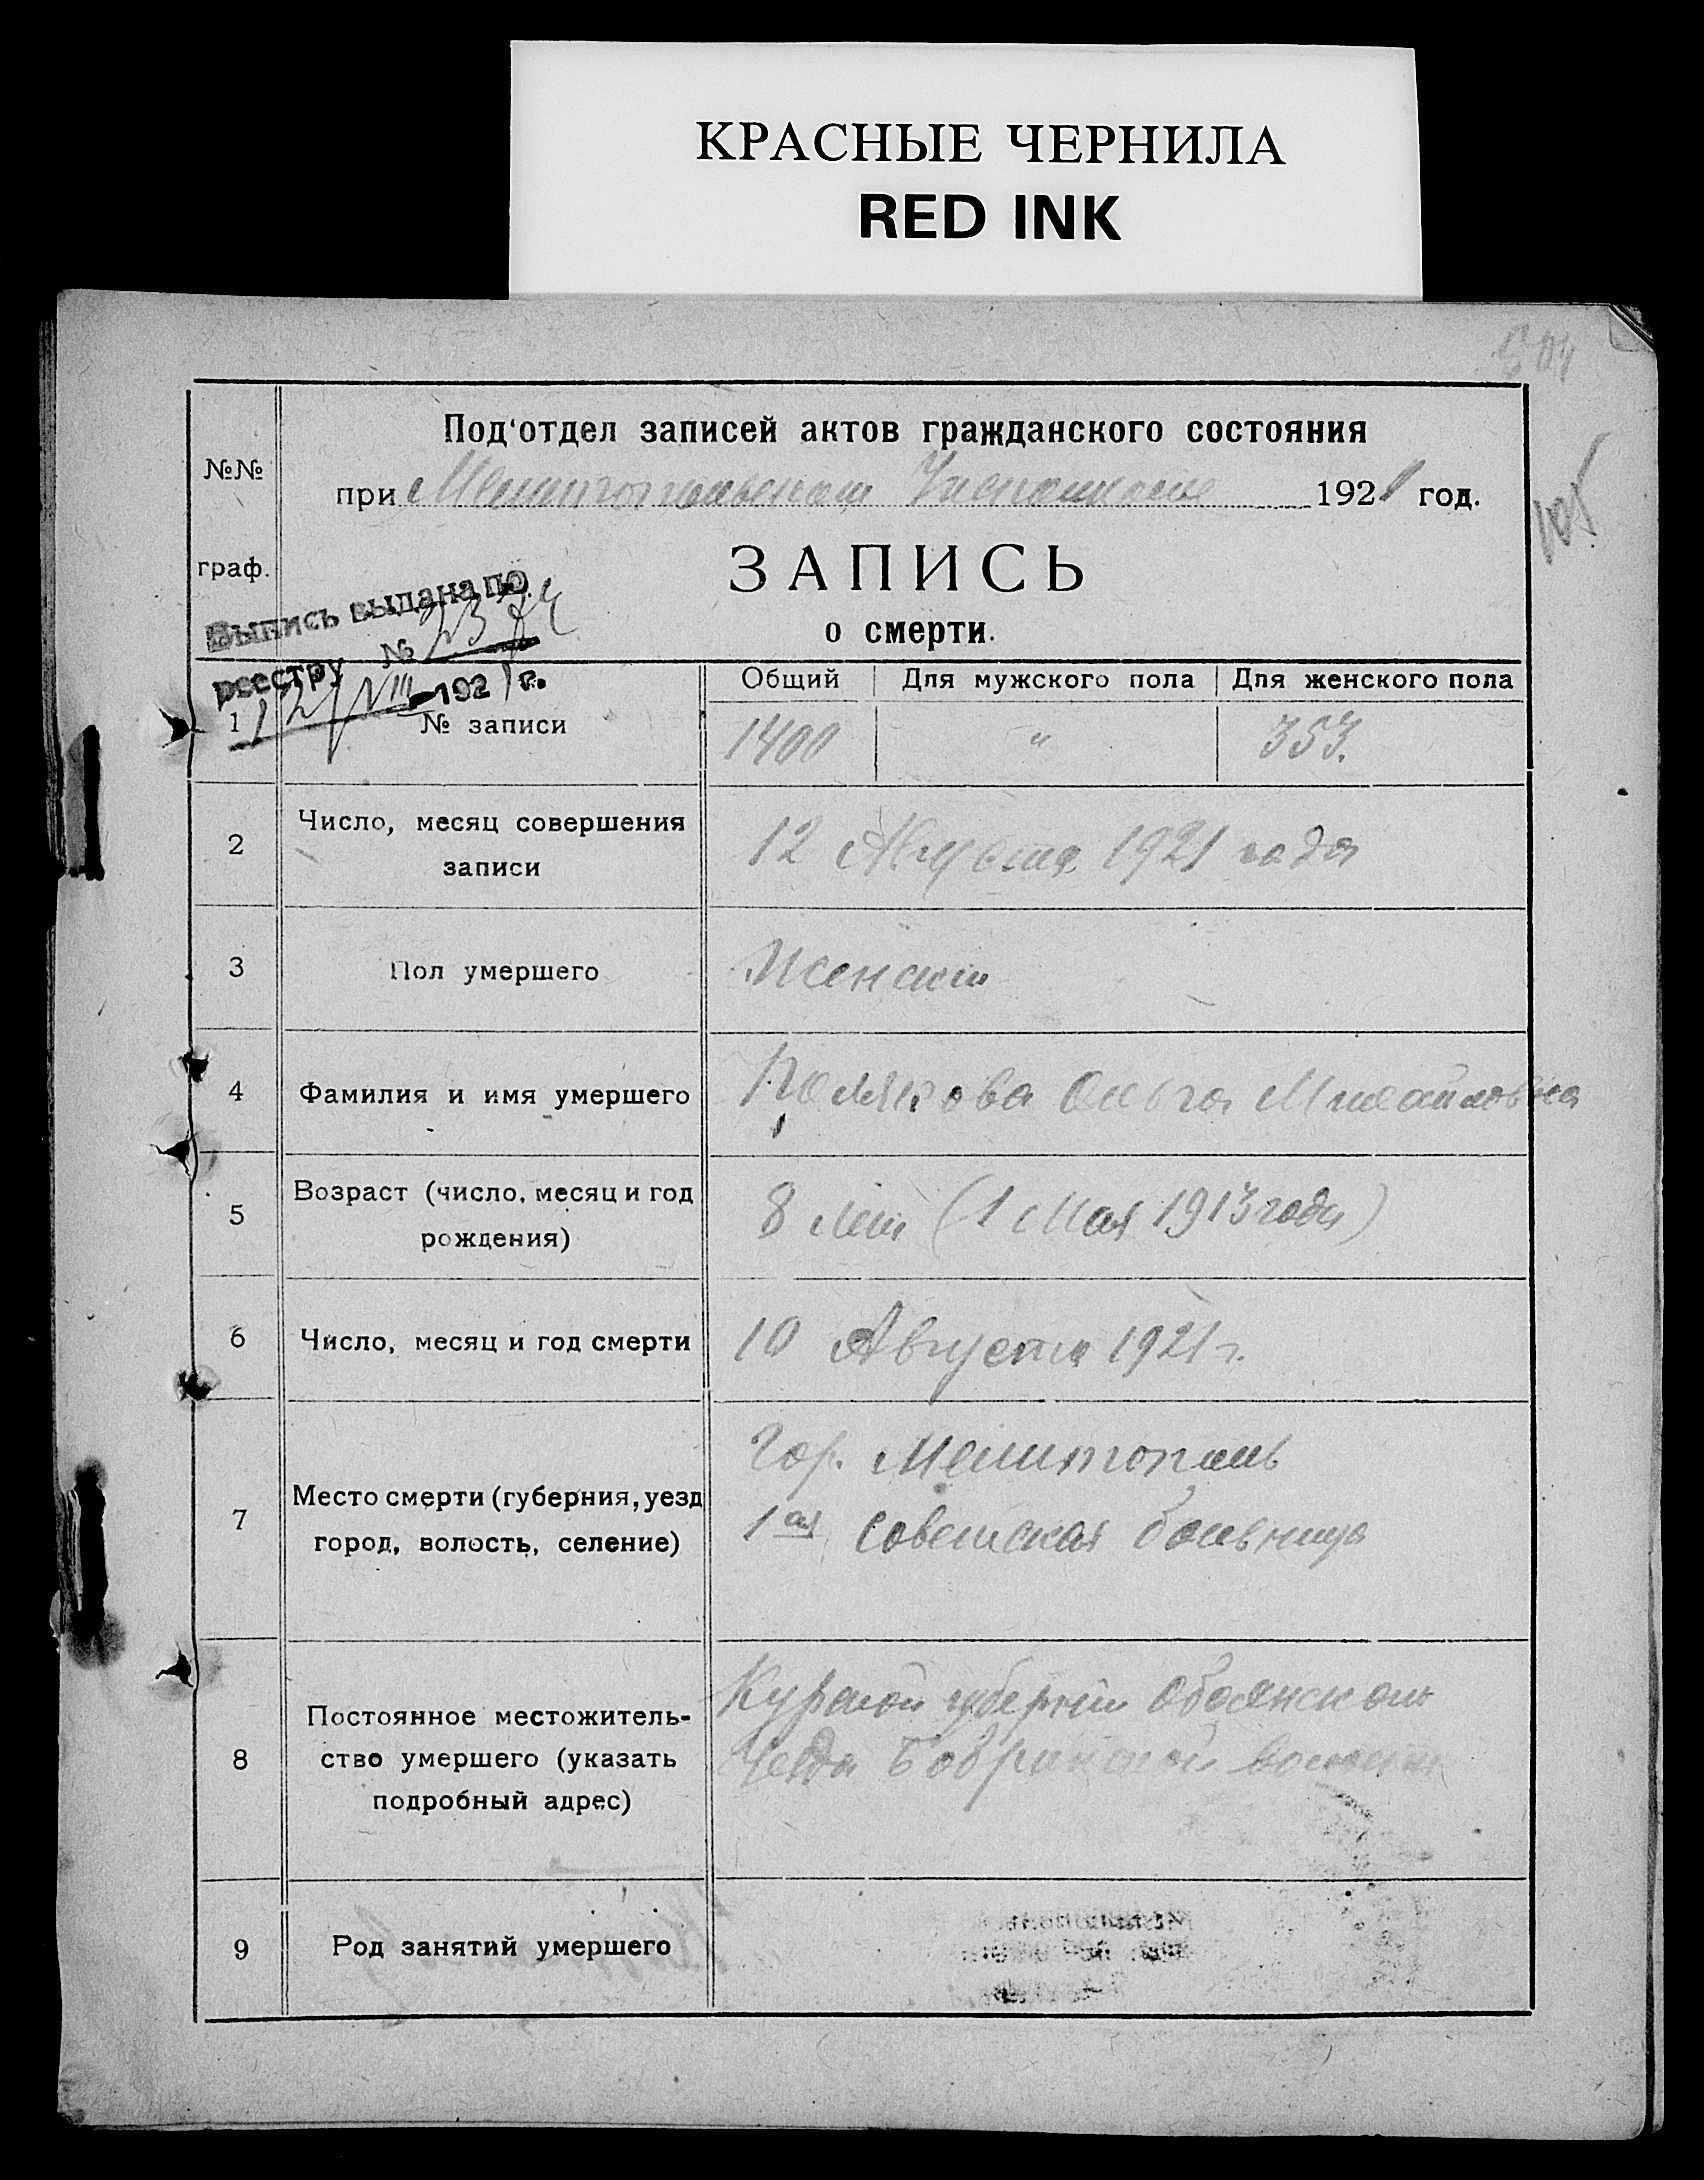 КРАСНЫЕ ЧЕРНИЛА
RED INK
504
105
Под'отдел записей актов гражданского состояния
№№
при Мелитопольском Исполкоме 1921 год.
граф.
ЗАПИСЬ
о смерти.
Выпись выдана по
реестру №
12/VIII 1921 г.
Общий Для мужского пола Для женского пола
1 № записи 1400 " 353.
2 Число, месяц совершения
записи
12 Августа 1921 года
3 Пол умершего Женский
4 Фамилия и имя умершего Ольга Михайловна
5 Возраст (число, месяц и год
рождения)
8 лет (1 Мая 1913 года)
6 Число, месяц и год смерти 10 Августа 1921 г.
7 Место смерти (губерния, уезд
город, волость, селение)
Гор. Мелитополь
1ая Советская больница
8 Постоянное местожитель-
ство умершего (указать
подробный адрес)
Курской губернии Обоянского
Уезда волости
9 Род занятий умершего